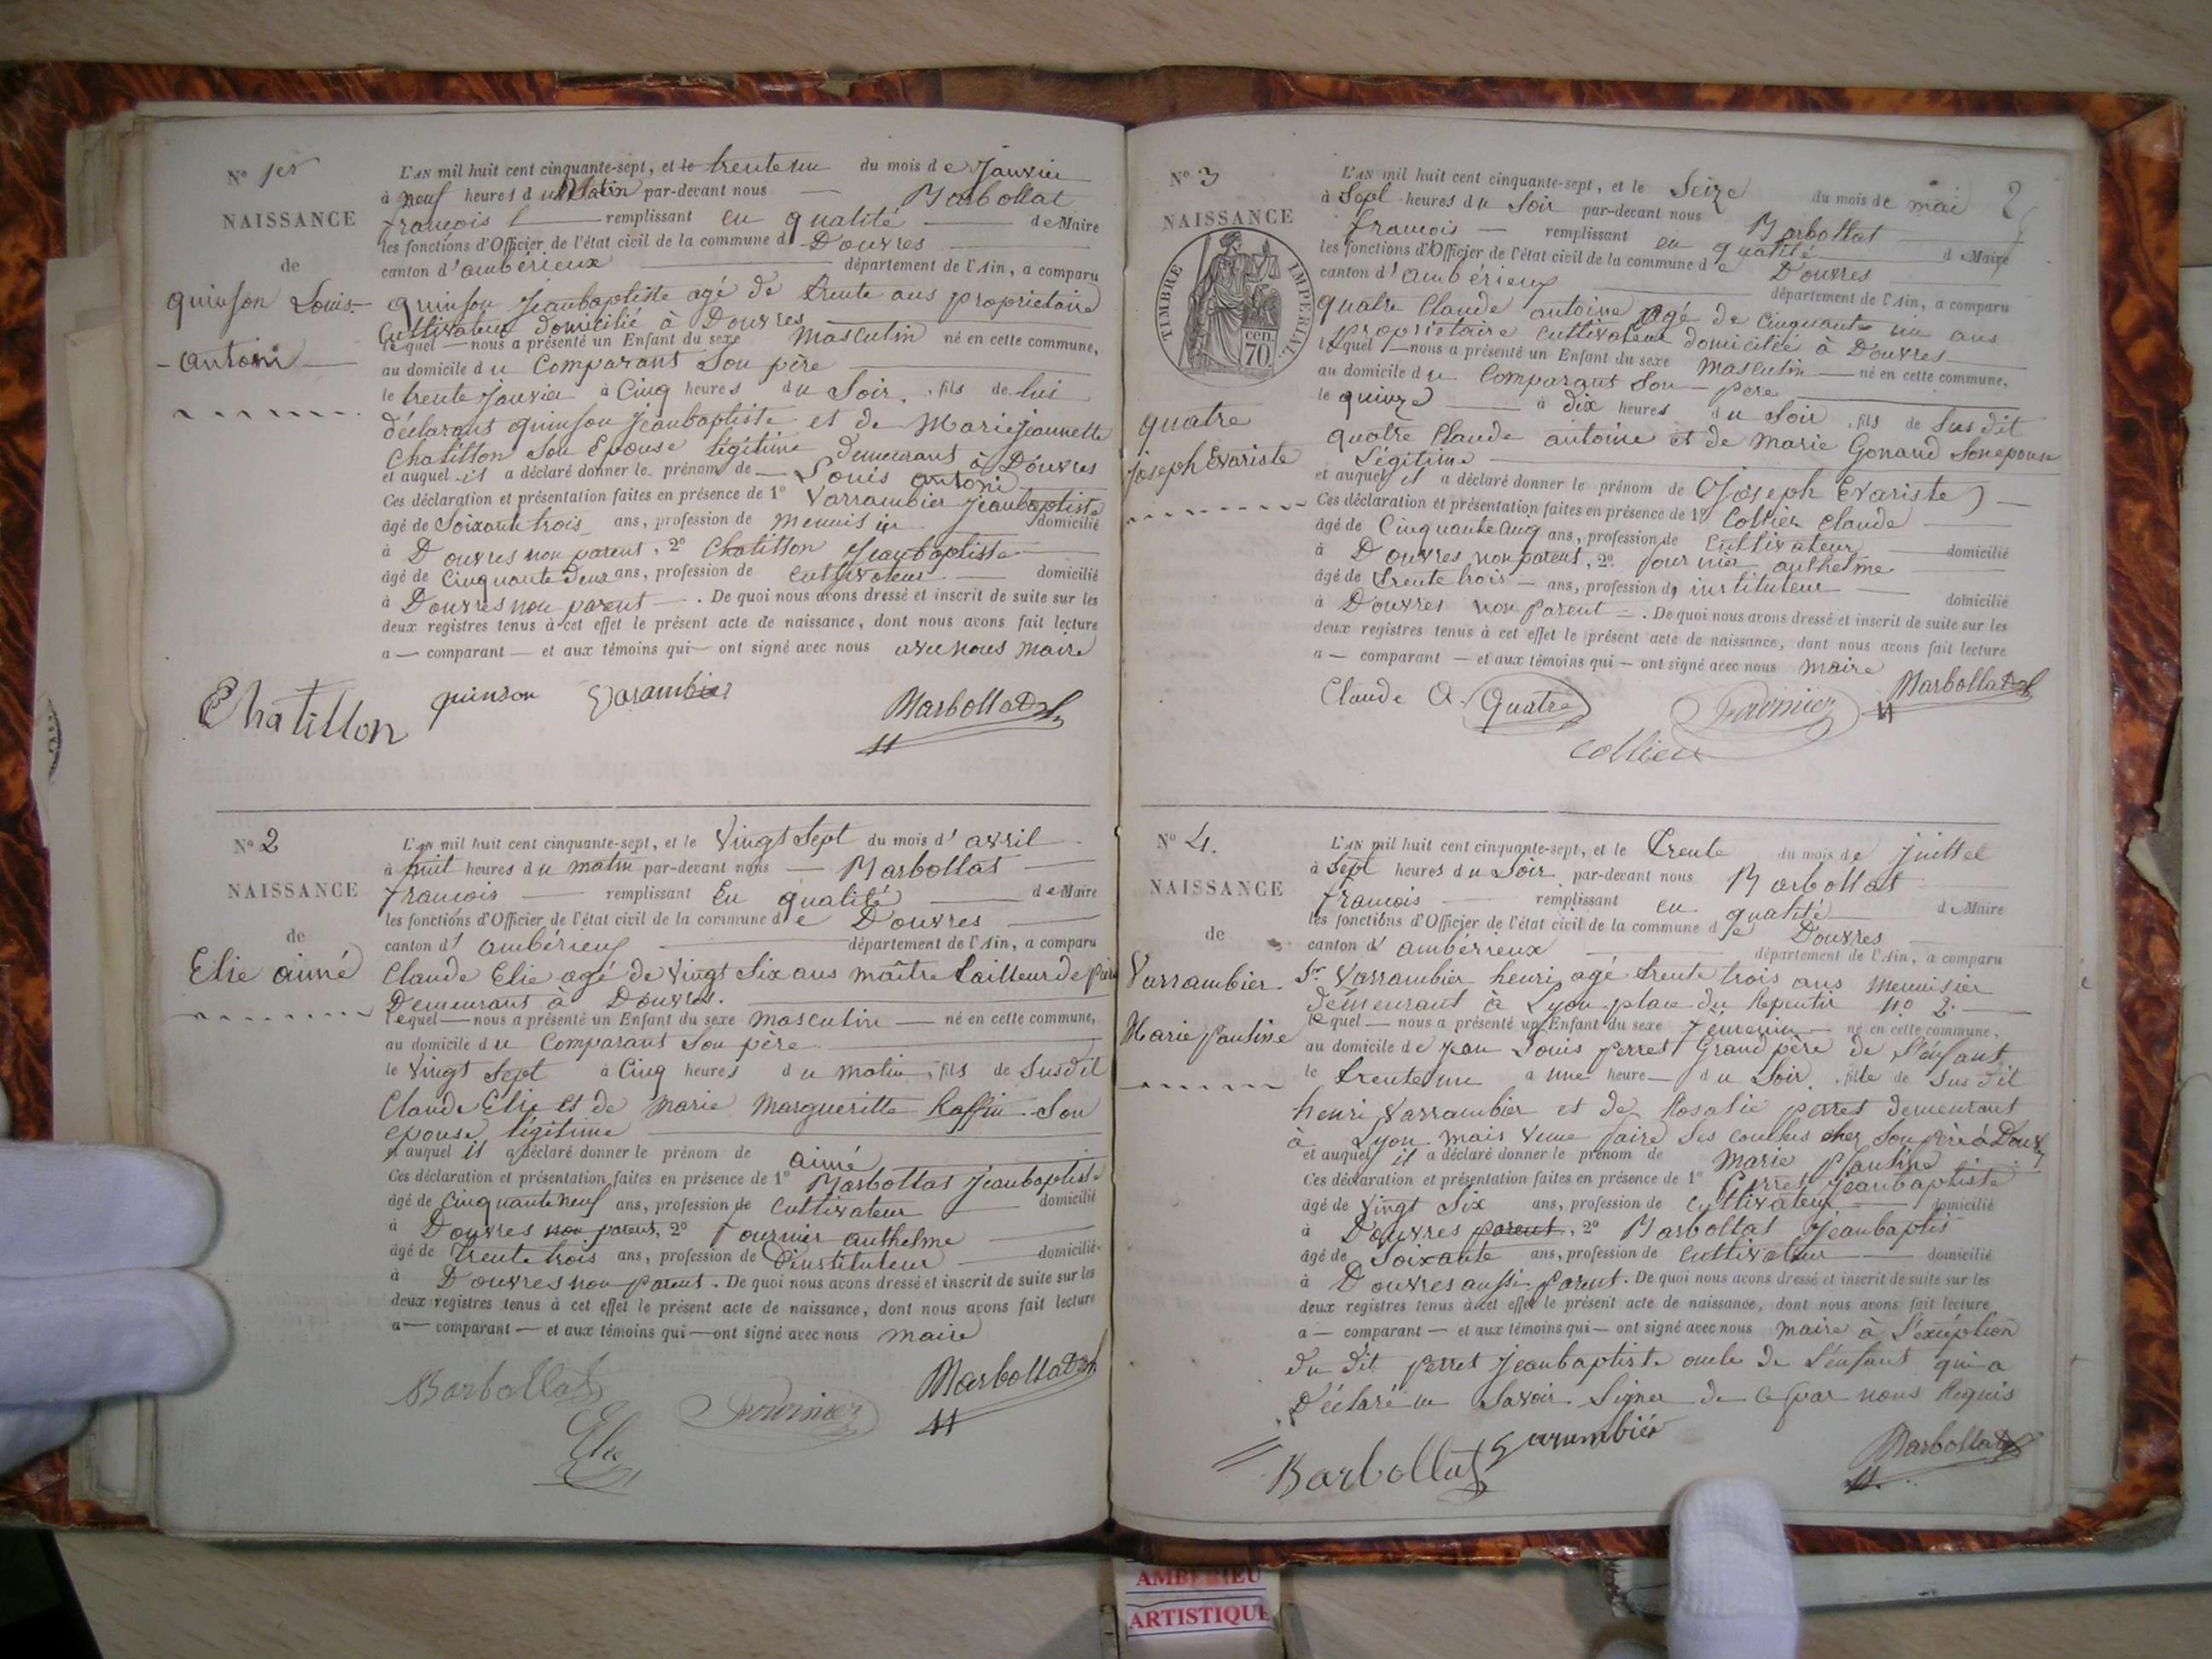 N° 1er
NAISSANCE
de
quinson Louis-
- antoni
L'AN mil huit cent cinquante-sept, et le trente un du mois de Janvier
à neuf heures du Matin par-devant nous Barbollat
françois remplissant en qualité de Maire
les fonctions d'Officier de l'état civil de la commune d Douvres
canton d'ambérieux département de l'Ain, a comparu
quinson Jeanbaptiste agé de trente ans proprietaire
Cultivateur domicilié à Douvres
lequel nous a présenté un Enfant du sexe Masculin né en cette commune,
au domicile du Comparant Son père
le trente Janvier à Cinq heures du Soir, fils de lui
déclarant quinson Jeanbaptiste et de Marie Jeannette
Chatillon Son Epouse légitime demeurant à Douvres
et auquel il a déclaré donner le prénom de Louis antoni
Ces déclaration et présentation faites en présence de 1° Varrambier Jeanbaptiste
âgé de Soixante trois ans, profession de Menuisier domicilié
à Douvres non parent, 2° Chatillon Jeanbaptiste
âgé de Cinquante deux ans, profession de Cultivateur domicilié
à Douvres non parent. De quoi nous avons dressé et inscrit de suite sur les
deux registres tenus à cet effet le présent acte de naissance, dont nous avons fait lecture
a comparant et aux témoins qui ont signé avec nous avec nous Maire
Chatillon quinson Varambier Barbollat
N° 2
NAISSANCE
de
Elie aimé
L'AN mil huit cent cinquante-sept, et le Vingt Sept du mois d'avril
à huit heures du matin par-devant nous Barbollat
françois remplissant En qualité de Maire
les fonctions d'Officier de l'état civil de la commune de Douvres
canton d'ambérieux département de l'Ain, a comparu
Claude Elie agé de Vingt Six ans maître tailleur de
Demeurant à Douvres.
lequel nous a présenté un Enfant du sexe masculin né en cette commune,
au domicile du Comparant Son père
le Vingt Sept à Cinq heures du matin, fils de Susdit
Claude Elie et de Marie Margueritte Raffin Son
epouse légitime
et auquel il a déclaré donner le prénom de aimé
Ces déclaration et présentation faites en présence de 1° Barbollat Jeanbaptiste
âgé de Cinquante neuf ans, profession de Cultivateur domicilié
à Douvres non parent, 2° fournier anthelme
âgé de Trente trois ans, profession de instituteur domicilié
à Douvres non parent. De quoi nous avons dressé et inscrit de suite sur les
deux registres tenus à cet effet le présent acte de naissance, dont nous avons fait lecture
a comparant et aux témoins qui ont signé avec nous maire
Barbollat Elie Fournier Barbollat
N° 3
NAISSANCE
TIMBRE IMPERIAL
cen. 70
quatre
joseph Evariste
L'AN mil huit cent cinquante-sept, et le Seize du mois de mai
2
à Sept heures du Soir par-devant nous Barbollat
françois remplissant en qualité d Maire
les fonctions d'Officier de l'état civil de la commune de Douvres
canton d'ambérieux département de l'Ain, a comparu
quatre Claude antoine agé de Cinquante un ans
proprietaire cultivateur domicilié à Douvres
lequel nous a présenté un Enfant du sexe Masculin né en cette commune,
au domicile du Comparant Son pere
le quinze à dix heures du Soir, fils de Susdit
quatre Claude antoine et de Marie Gonand Son epouse
Légitime
et auquel il a déclaré donner le prénom de Joseph Evariste
Ces déclaration et présentation faites en présence de 1° Collier Claude
âgé de Cinquante cinq ans, profession de Cultivateur domicilié
à Douvres non parent, 2° fournier anthelme
âgé de trente trois ans, profession d instituteur domicilié
à Douvres non parent. De quoi nous avons dressé et inscrit de suite sur les
deux registres tenus à cet effet le présent acte de naissance, dont nous avons fait lecture
a comparant et aux témoins qui ont signé avec nous Maire
Claude A. Quatre Fournier Barbollat
Collier
N° 4.
NAISSANCE
de
Varrambier
Marie pauline
L'AN mil huit cent cinquante-sept, et le Trente du mois de juillet
à Sept heures du Soir par-devant nous Barbollat
françois remplissant en qualité d Maire
les fonctions d'Officier de l'état civil de la commune de Douvres
canton d'ambérieux département de l'Ain, a comparu
Sr Varrambier henri agé trente trois ans Menuisier
demeurant à Lyon place du Repentir N° 2.
lequel nous a présenté un Enfant du sexe féminin né en cette commune,
au domicile de Jean Louis perret Grand père de l'enfant
le trente un à une heure du Soir, fille de Susdit
henri Varrambier et de Rosalie perret demeurant
à Lyon mais venue faire Ses couches chez Son père à Douvres
et auquel il a déclaré donner le prénom de Marie Pauline
Ces déclaration et présentation faites en présence de 1° Perret Jeanbaptiste
âgé de Vingt Six ans, profession de Cultivateur domicilié
à Douvres parent, 2° Barbollat Jeanbaptis
âgé de Soixante ans, profession de Cultivateur domicilié
à Douvres aussi parent. De quoi nous avons dressé et inscrit de suite sur les
deux registres tenus à cet effet le présent acte de naissance, dont nous avons fait lecture
a comparant et aux témoins qui ont signé avec nous maire à l'exception
du dit perret Jeanbaptiste oncle de l'enfant qui a
Déclaré ne Savoir Signer de ce par nous Requis
Barbollat Varambier Barbollat
AMBERIEU
ARTISTIQUE